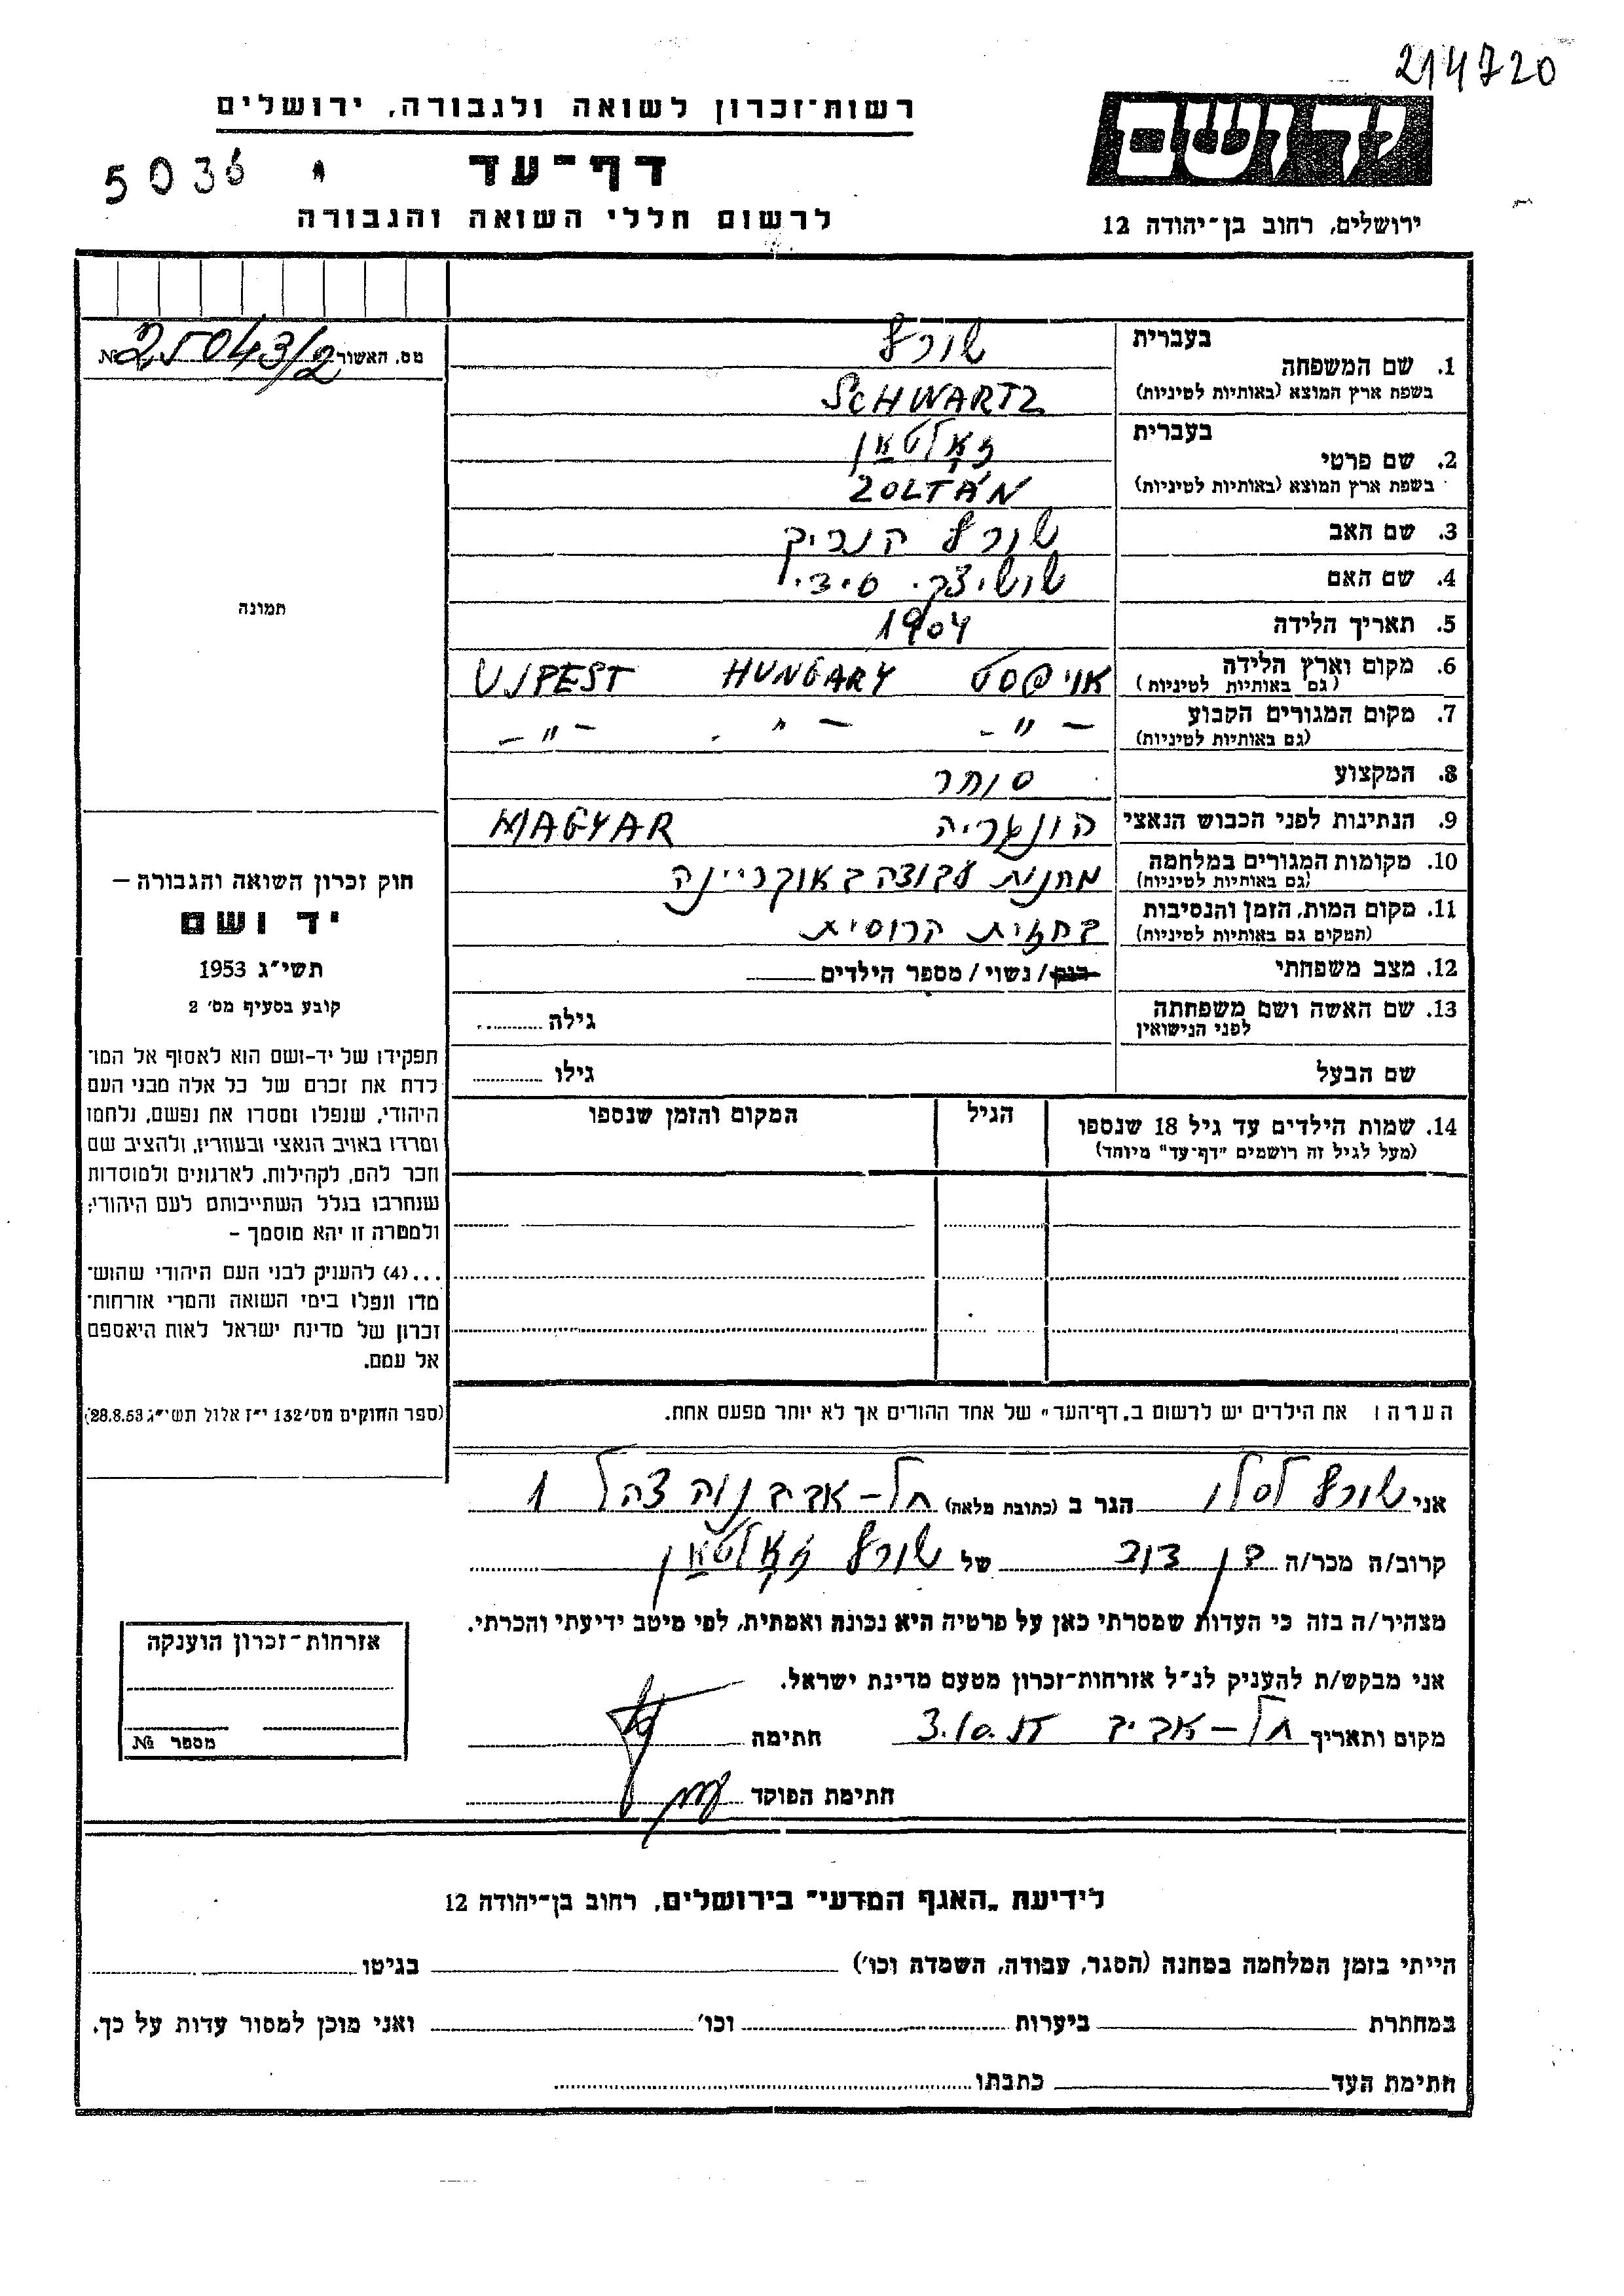 214720
רשות־זכרון לשואה ולגבורה, ירושלים
ידושם
5036
דף־עד
לרשום חללי השואה והגבורה
ירושלים, רחוב בן־יהודה 12
מס. האשור № 25043/2
בעברית
שורץ
1. שם המשפחה
בשפת ארץ המוצא (באותיות לטיניות)
SCHWARTZ
בעברית
זאָלטאַן
2. שם פרטי
בשפת ארץ המוצא (באותיות לטיניות)
ZOLTÁN
3. שם האב
שורץ הנריק
4. שם האם
5. תאריך הלידה
1904
6. מקום וארץ הלידה
(גם באותיות לטיניות)
אויפסט HUNGARY UJPEST
7. מקום המגורים הקבוע
(גם באותיות לטיניות)
–"– –"– –"–
8. המקצוע
סוחר
9. הנתינות לפני הכבוש הנאצי
הונגריה MAGYAR
10. מקומות המגורים במלחמה
(גם באותיות לטיניות)
מחנות עבודה באוקריינה
11. מקום המות, הזמן והנסיבות
(המקום גם באותיות לטיניות)
בחזית הרוסית
12. מצב משפחתי
רווק/ נשוי/ מספר הילדים
13. שם האשה ושם משפחתה
לפני הנישואין
גילה
שם הבעל
גילו
14. שמות הילדים עד גיל 18 שנספו
(מעל לגיל זה רושמים "דף־עד" מיוחד)
הגיל
המקום והזמן שנספו
הערה: את הילדים יש לרשום ב„דף־העד" של אחד ההורים אך לא יותר מפעם אחת.
תמונה
חוק זכרון השואה והגבורה –
יד ושם
תשי"ג 1953
קובע בסעיף מס' 2
תפקידו של יד-ושם הוא לאסוף אל המו־
לדת את זכרם של כל אלה מבני העם
היהודי, שנפלו ומסרו את נפשם, נלחמו
ומרדו באויב הנאצי ובעוזריו, ולהציב שם
וזכר להם, לקהילות, לארגונים ולמוסדות
שנחרבו בגלל השתייכותם לעם היהודי;
ולמטרה זו יהא מוסמך –
...(4) להעניק לבני העם היהודי שהוש־
מדו ונפלו בימי השואה והמרי אזרחות־
זכרון של מדינת ישראל לאות היאספם
אל עמם.
(ספר החוקים מס' 132 י"ז אלול תשי"ג 28.8.53)
אני שורץ לסלו הגר ב (כתובת מלאה) תל-אביב נוה צהל 1
קרוב/ה מכר/ה בן דוב של שורץ זאָלטאַן
מצהיר/ה בזה כי העדות שמסרתי כאן על פרטיה היא נכונה ואמתית, לפי מיטב ידיעתי והכרתי.
אני מבקש/ת להעניק לנ"ל אזרחות־זכרון מטעם מדינת ישראל.
מקום ותאריך תל-אביב 3.10.57 חתימה
חתימת הפוקד
אזרחות־זכרון הוענקה
מספר №
לידיעת „האגף המדעי" בירושלים, רחוב בן־יהודה 12
הייתי בזמן המלחמה במחנה (הסגר, עבודה, השמדה וכו') בגיטו
במחתרת ביערות וכו' ואני מוכן למסור עדות על כך.
חתימת העד כתבתו